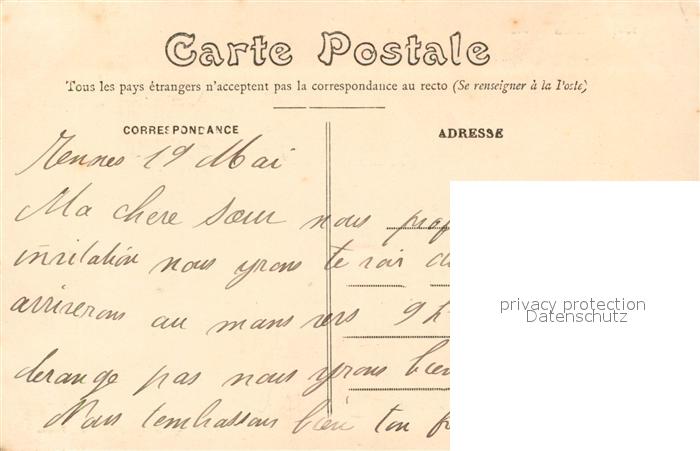 Carte Postale
Tous les pays étrangers n'acceptent pas la correspondance au recto (Se renseigner à la Poste)
CORRESPONDANCE
ADRESSE
Rennes 19 Mai
Ma chere Sœur nous
invitation nous yrons te voir
arriverons au mans vers 9 h
derange pas nous yrons bien
Nous t'embrassons bien ton
privacy protection
Datenschutz